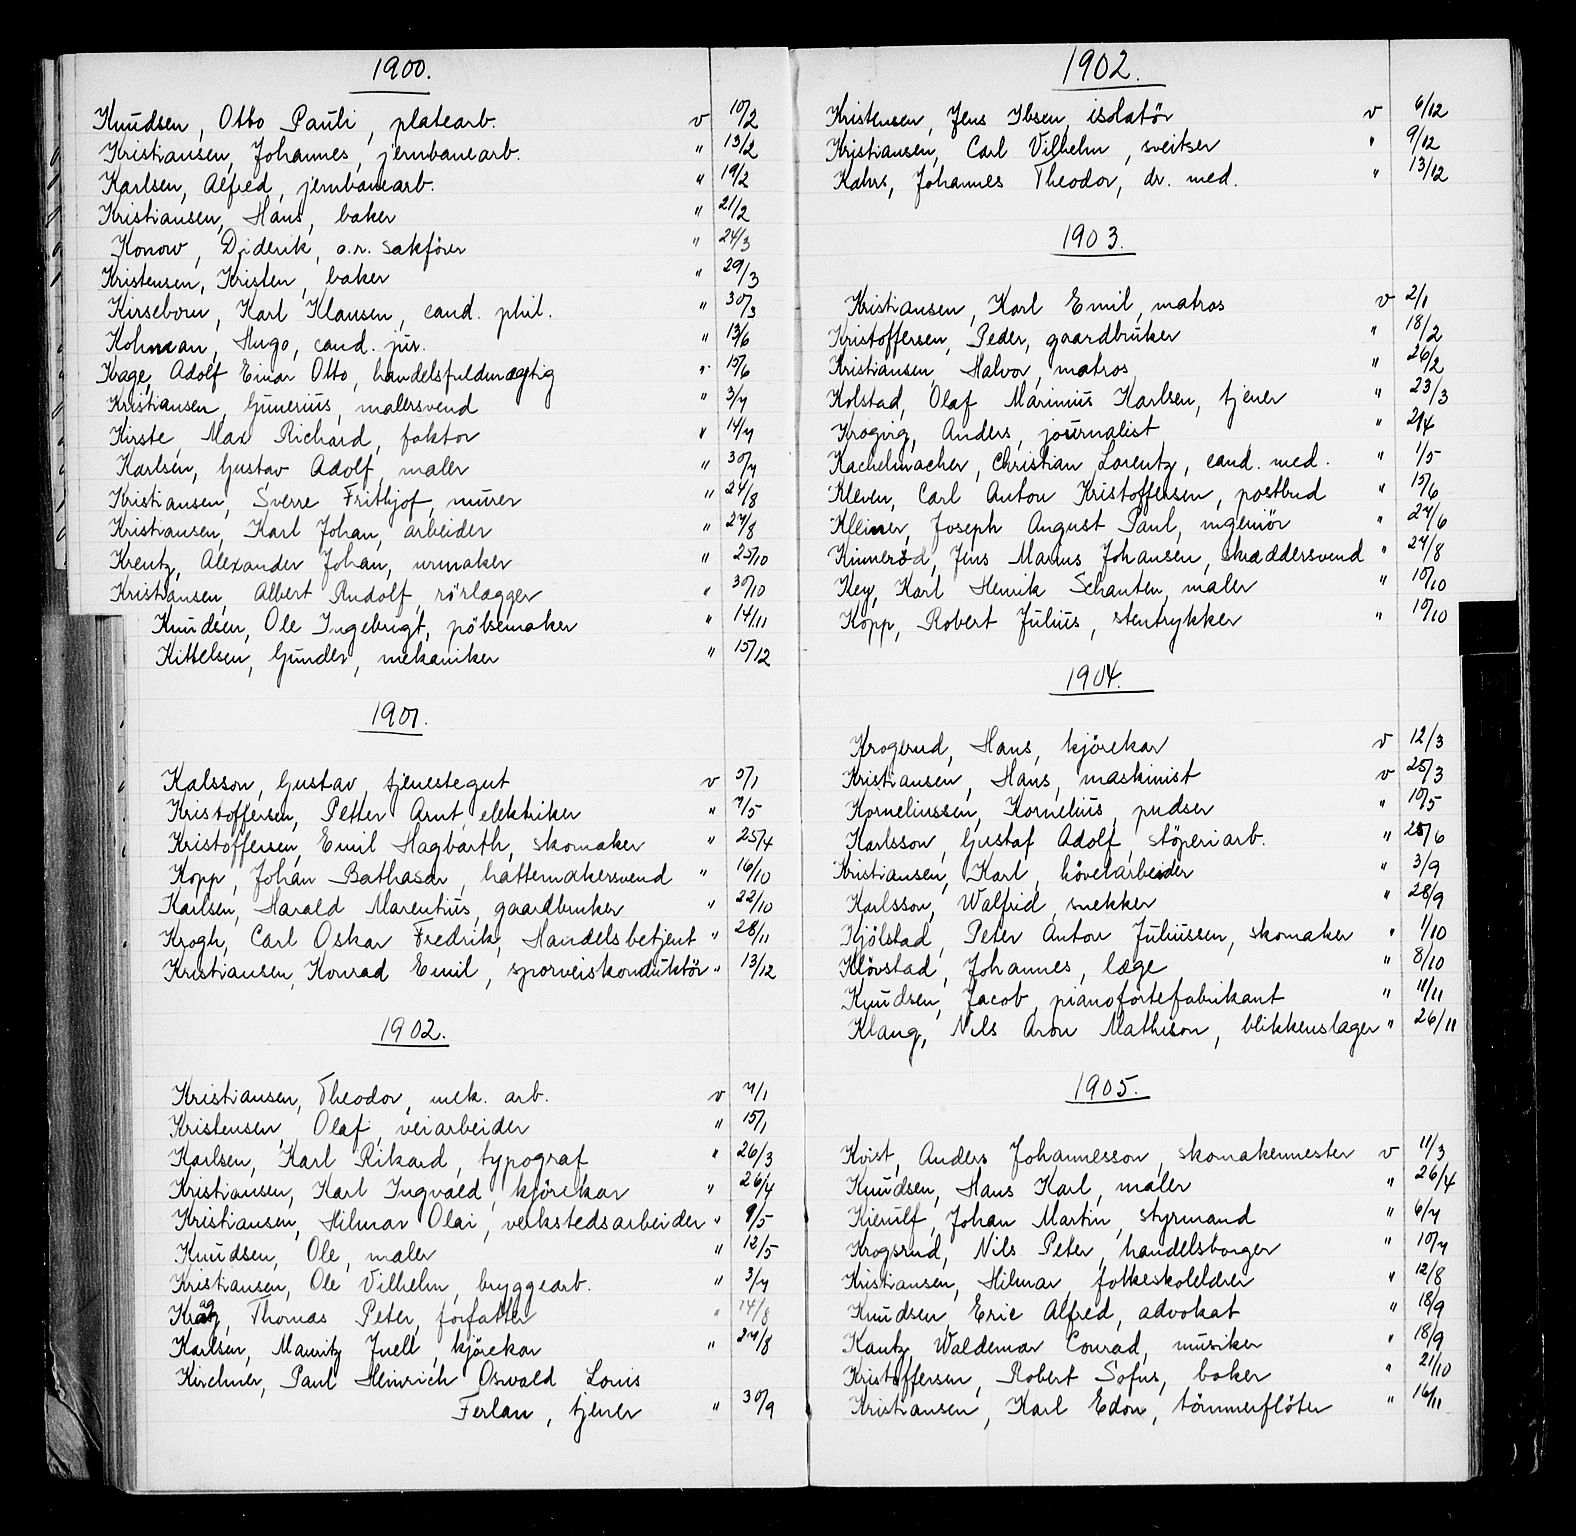 1900.
Knudsen, Otto Pauli, platearb. v 10/2
Kristiansen, Johannes, jernbanearb. " 13/2
Karlsen, Alfred, jernbanearb. " 19/2
Kristiansen, Hans, baker " 21/2
Konow, Diderik, o.r. sakfører " 24/3
Kristensen, Kristen, baker " 29/3
Kirsebom, Karl Klausen, cand. phil. " 30/3
Kohman, Hugo, cand. jur. " 13/6
Krage, Adolf Einar Otto, handelsfuldmægtig " 15/6
Kristiansen, Gunerius, malersvend " 3/7
Kirste, Max Richard, faktor " 14/7
Karlsen, Gustav Adolf, maler " 30/7
Kristiansen, Sverre Fritjof, murer " 24/8
Kristiansen, Karl Johan, arbeider " 27/8
Krentz, Alexander Johan, urmaker " 25/10
Kristiansen, Albert Rudolf, rörlægger " 30/10
Knudsen, Ole Ingebrigt, pölsemaker " 14/11
Kittelsen, Gunder, mekaniker " 15/12
1901.
Kalsson, Gustav, tjenestegut v 5/1
Kristoffersen, Petter Arnt, elektriker " 7/5
Kristoffersen, Emil Hagbarth, skomaker " 25/4
Kopp, Johan Bathasar, hattemakersvend " 16/10
Karlsen, Harald Marentius, gaardbruker " 22/10
Krogh, Carl Oskar Fredrik, Handelsbetjent " 28/11
Kristiansen, Konrad Emil, sporveiskonduktör " 13/12
1902.
Kristiansen, Theodor, mek. arb. v 7/1
Kristensen, Olaf, veiarbeider " 15/1
Karlsen, Karl Rikard, typograf " 26/3
Kristiansen, Karl Ingvald, kjörekar " 26/4
Kristiansen, Hilmar Olai, verkstedsarbeider " 9/5
Knudsen, Ole, maler " 12/5
Kristiansen, Ole Vilhelm, bryggearb. " 3/7
Krag, Thomas Peter, forfatter " 14/8
Karlsen, Mauritz Juell, kjörekar " 27/8
Kirchner, Paul Heinrich Oswald Louis
Ferlan, tjener " 30/9
1902.
Kristensen, Jens Ibsen, isolatör v 6/12
Kristiansen, Carl Vilhelm, sveitser " 9/12
Kahrs, Johannes Theodor, dr. med. " 13/12
1903.
Kristiansen, Karl Emil, matros v 2/1
Kristoffersen, Peder, gaardbruker " 18/2
Kristiansen, Halvor, matros " 26/2
Kolstad, Olaf Marinius Karlsen, tjener " 23/3
Krogvig, Anders, journalist "
Kachelmacher, Christian Lorentz, cand. med. " 1/5
Kleven, Carl Anton Kristoffersen, postbud " 15/6
Kleiner, Joseph August Paul, ingeniör " 27/6
Kinneröd, Jens Marius Johansen, skræddersvend " 27/8
Key, Karl Henrik Schanten, maler " 10/10
Kopp, Robert Julius, stentrykker " 10/10
1904.
Krogerud, Hans, kjörekar v 12/3
Kristiansen, Hans, maskinist v 25/3
Korneliussen, Kornelius, pudser " 10/5
Karlsson, Gustaf Adolf, stöperiarb. " 25/6
Kristiansen, Karl, hövelarbeider " 3/9
Karlsson, Walfrid, snekker " 28/9
Kjölstad, Peter Anton Juliussen, skomaker " 1/10
Klövstad, Johannes, læge " 8/10
Knudsen, Jacob, pianofortefabrikant " 11/11
Klang, Nils Aron Mathison, blikkenslager " 26/11
1905.
Kvist, Anders Johannesson, skomakermester v 11/3
Knudsen, Hans Karl, maler " 26/4
Kierulf, Johan Martin, styrmand " 6/7
Krogsrud, Nils Peter, handelsborger " 10/7
Kristiansen, Hilmar, folkeskolelærer " 12/8
Knudsen, Eric Alfred, advokat " 18/9
Kautz, Waldemar Conrad, musiker " 18/9
Kristoffersen, Robert Sofus, baker " 21/10
Kristiansen, Karl Edon, tömmerflöter " 16/11